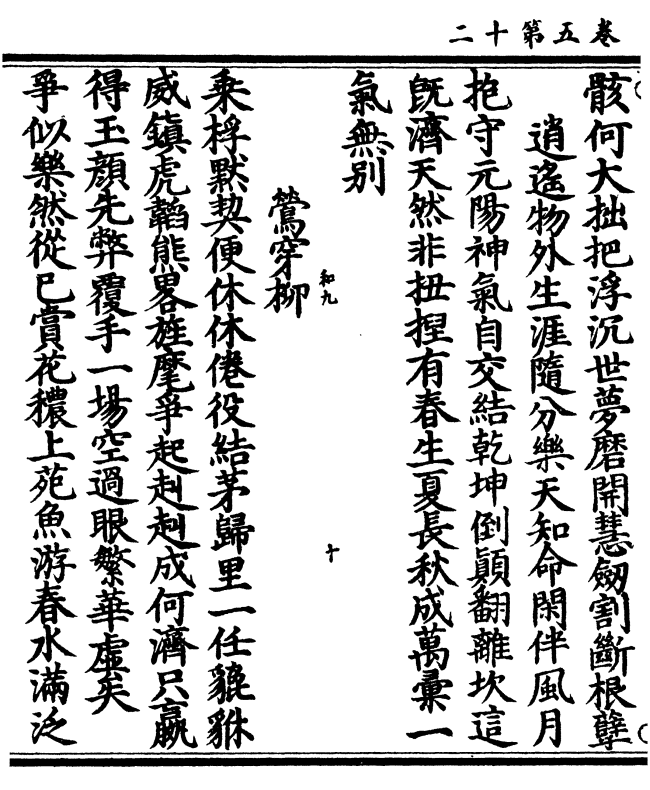 卷五第十二
骸何大拙把浮沉世夢磨開慧劒割斷根孽
逍遙物外生涯隨分樂天知命閑伴風月
抱守元陽神氣自交結乾坤倒顛翻離坎這
旣濟天然非扭揑有春生夏長秋成萬彙一
氣無別
鶯穿柳
和九
十
乘桴默契便休休倦役結茅歸里一任貔貅
威鎭虎韜熊畧旌麾爭起赳赳成何濟只贏
得玉顔先弊覆手一場空過眼繁華虛矣
爭似樂然從已賞花穠上苑魚游春水滿泛